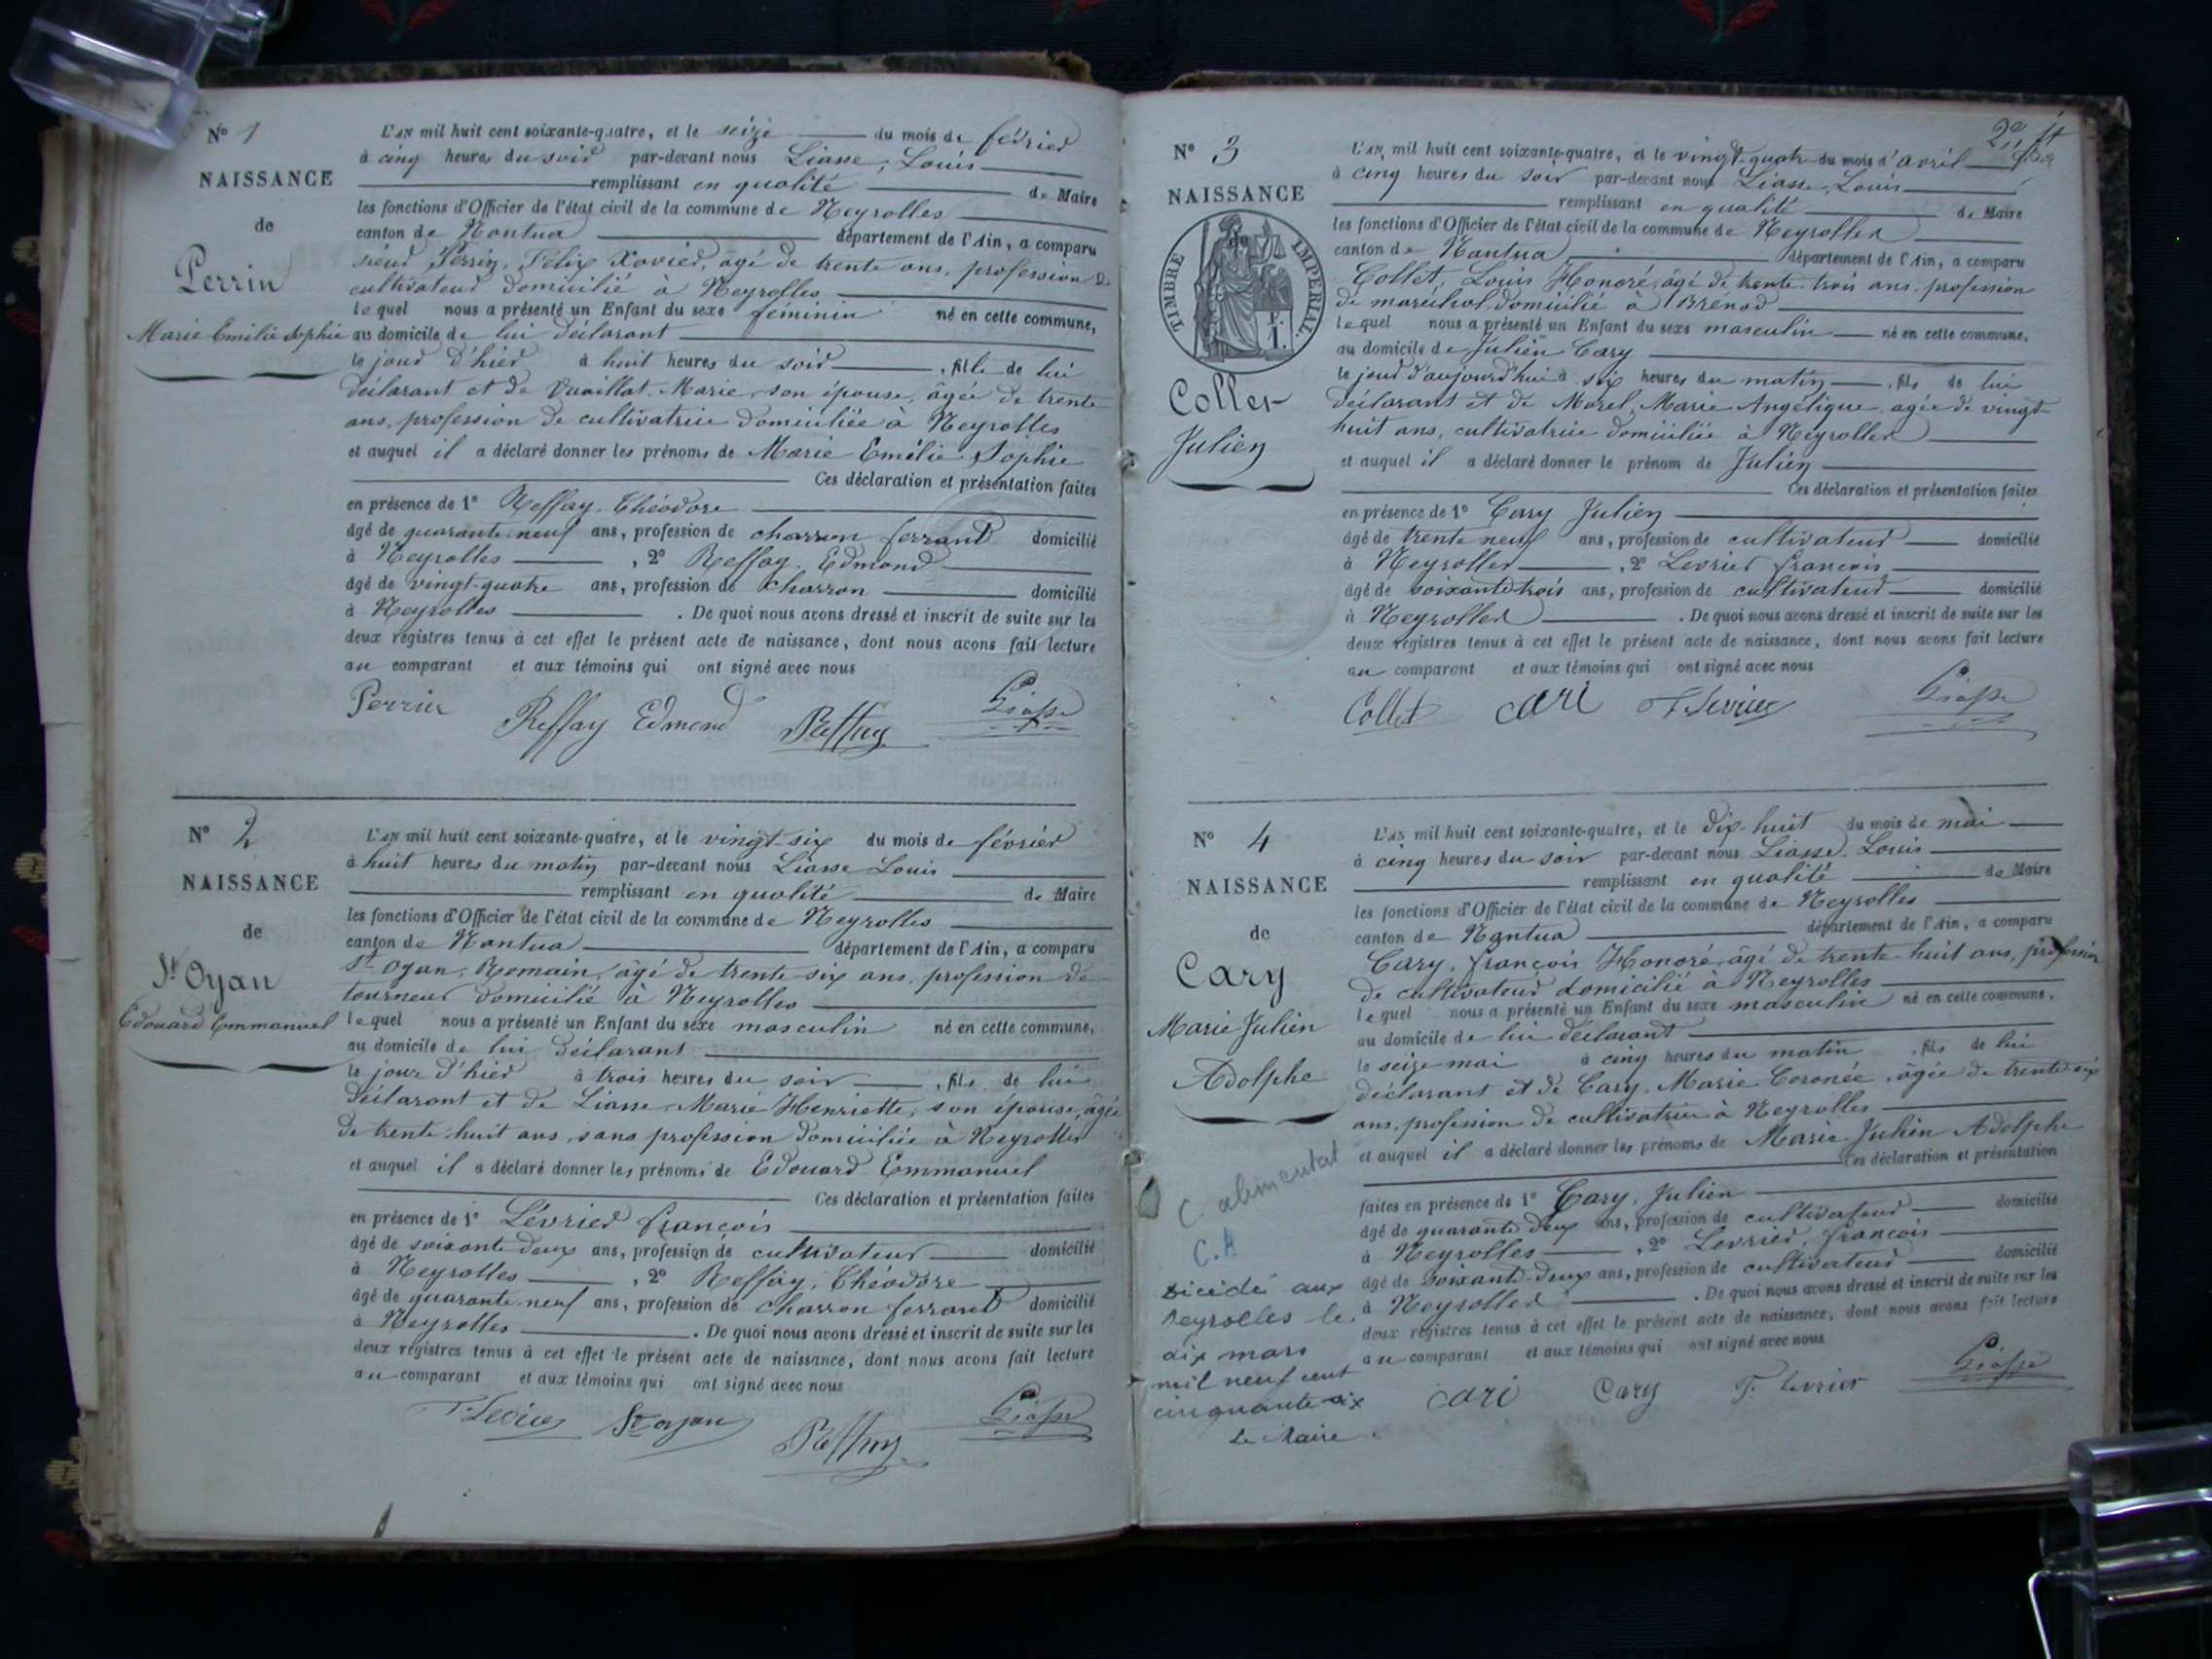 N° 1
NAISSANCE
de
Perrin
Marie Emilie Sophie
L'AN mil huit cent soixante-quatre, et le seize du mois de février
à cinq heures du soir par-devant nous Liasse, Louis
remplissant en qualité de Maire
les fonctions d'Officier de l'état civil de la commune de Neyrolles
canton de Nantua département de l'Ain, a comparu
sieur Perrin, Félix Xavier, âgé de trente ans, profession de
cultivateur domicilié à Neyrolles
lequel nous a présenté un Enfant du sexe feminin né en cette commune,
au domicile de lui déclarant
le jour d'hier à huit heures du soir, fille de lui
déclarant et de Vuaillat Marie, son épouse, âgée de trente
ans, profession de cultivatrice domiciliée à Neyrolles
et auquel il a déclaré donner les prénoms de Marie Emélie Sophie
Ces déclaration et présentation faites
en présence de 1° Reffay, Théodore
âgé de quarante-neuf ans, profession de charron ferrant domicilié
à Neyrolles, 2° Reffay, Edmond
âgé de vingt-quatre ans, profession de charron domicilié
à Neyrolles. De quoi nous avons dressé et inscrit de suite sur les
deux registres tenus à cet effet le présent acte de naissance, dont nous avons fait lecture
au comparant et aux témoins qui ont signé avec nous
Perrin Reffay Edmond Reffay Liasse
N° 2
NAISSANCE
de
St Oyan
Edouard Emmanuel
L'AN mil huit cent soixante-quatre, et le vingt six du mois de février
à huit heures du matin par-devant nous Liasse Louis
remplissant en qualité de Maire
les fonctions d'Officier de l'état civil de la commune de Neyrolles
canton de Nantua département de l'Ain, a comparu
St Oyan, Romain, âgé de trente six ans, profession de
tourneur domicilié à Neyrolles
lequel nous a présenté un Enfant du sexe masculin né en cette commune,
au domicile de lui déclarant
le jour d'hier à trois heures du soir, fils de lui
déclarant et de Liasse, Marie Henriette, son épouse, âgée
de trente huit ans, sans profession domiciliée à Neyrolles
et auquel il a déclaré donner les prénoms de Edouard Emmanuel
Ces déclaration et présentation faites
en présence de 1° Lévrier françois
âgé de soixante deux ans, profession de cultivateur domicilié
à Neyrolles, 2° Reffay, Théodore
âgé de quarante-neuf ans, profession de charron ferrant domicilié
à Neyrolles. De quoi nous avons dressé et inscrit de suite sur les
deux registres tenus à cet effet le présent acte de naissance, dont nous avons fait lecture
au comparant et aux témoins qui ont signé avec nous
F. Levrier St oyan Reffay Liasse
2e ft
N° 3
NAISSANCE
TIMBRE IMPERIAL
1 F.
Collet
Julien
L'AN mil huit cent soixante-quatre, et le vingt-quatre du mois d'avril
à cinq heures du soir par-devant nous Liasse, Louis
remplissant en qualité de Maire
les fonctions d'Officier de l'état civil de la commune de Neyrolles
canton de Nantua département de l'Ain, a comparu
Collet, Louis Honoré, âgé de trente-trois ans, profession
de maréchal domicilié à Brenod
lequel nous a présenté un Enfant du sexe masculin né en cette commune,
au domicile de Julien Cary
le jour d'aujourd'hui à six heures du matin, fils de lui
déclarant et de Morel, Marie Angélique, agée de vingt
huit ans, cultivatrice domiciliée à Neyrolles
et auquel il a déclaré donner le prénom de Julien
Ces déclaration et présentation faites
en présence de 1° Cary Julien
âgé de trente neuf ans, profession de cultivateur domicilié
à Neyrolles, 2° Levrier françois
âgé de soixante trois ans, profession de cultivateur domicilié
à Neyrolles. De quoi nous avons dressé et inscrit de suite sur les
deux registres tenus à cet effet le présent acte de naissance, dont nous avons fait lecture
au comparant et aux témoins qui ont signé avec nous
Collet cari F. Levrier Liasse
N° 4
NAISSANCE
de
Cary
Marie Julien
Adolphe
C. alimentat
C.A
Décédé aux
Neyrolles le
dix mars
mil neuf cent
cinquante six
Le Maire.
L'AN mil huit cent soixante-quatre, et le dix-huit du mois de mai
à cinq heures du soir par-devant nous Liasse, Louis
remplissant en qualité de Maire
les fonctions d'Officier de l'état civil de la commune de Neyrolles
canton de Nantua département de l'Ain, a comparu
Cary, françois Honoré, âgé de trente-huit ans, profession
de cultivateur domicilié à Neyrolles
lequel nous a présenté un Enfant du sexe masculin né en cette commune,
au domicile de lui déclarant
le seize mai à cinq heures du matin, fils de lui
déclarant et de Cary, Marie Coronée, âgée de trente six
ans, profession de cultivatrice à Neyrolles
et auquel il a déclaré donner les prénoms de Marie Julien Adolphe
Ces déclaration et présentation
faites en présence de 1° Cary, Julien
âgé de quarante deux ans, profession de cultivateur domicilié
à Neyrolles, 2° Levrier, françois
âgé de soixante-deux ans, profession de cultivateur domicilié
à Neyrolles. De quoi nous avons dressé et inscrit de suite sur les
deux registres tenus à cet effet le présent acte de naissance, dont nous avons fait lecture
au comparant et aux témoins qui ont signé avec nous
cari Cary F. levrier Liasse